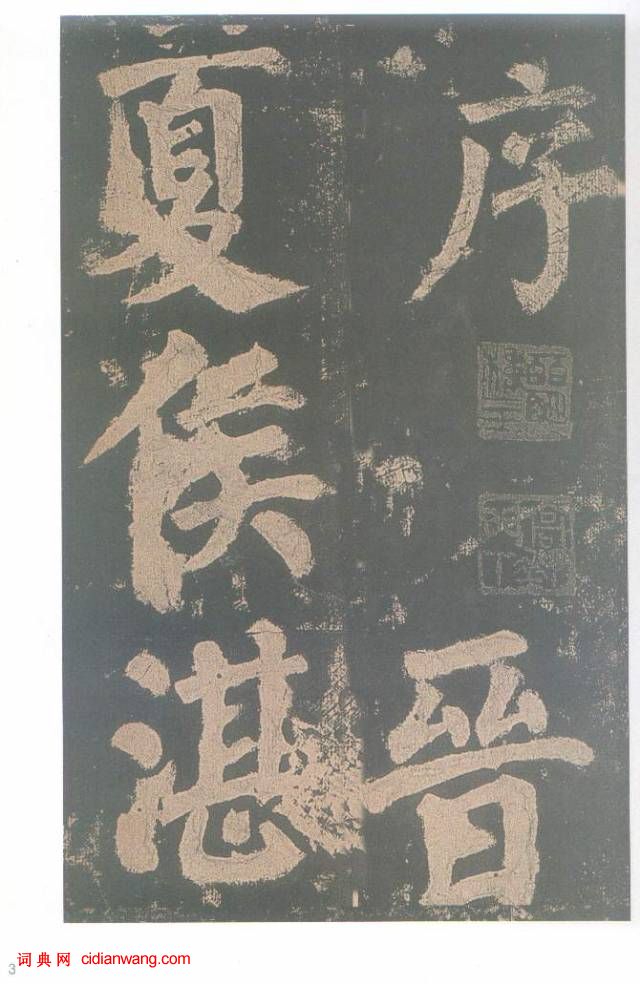 序晉
夏侯湛
3
词典网 cidianwang.com